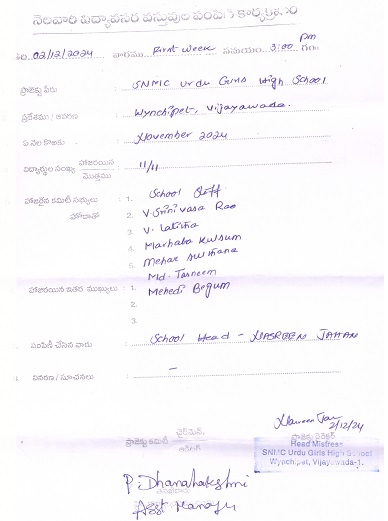 నెలవారీ విద్యావసర వస్తువుల పంపిణీ కార్యక్రమం
02/12/2024 వారము First week సమయం 3:00 Pm గం.
ప్రాజెక్టు పేరు : SNMC Urdu Girls High School
ప్రదేశము / వివరణ : Wynchipet, Vijayawada.
ఏ నెల కొరకు : November 2024
విద్యార్థుల సంఖ్య హాజరయిన / మొత్తము : 11/11
హాజరైన కమిటీ సభ్యులు : 1. School Staff
హోదాతో 2. V. Srinivasa Rao
3. V. Latitha
4. Marhaba Kulsum
5. Mehar Sultana
Md. Tasneem
హాజరయిన ఇతర ముఖ్యులు : 1. Mehedi Begum
2.
3.
పంపిణీ చేసిన వారు : School Head - NASREEN JAHAN
వివరణ / సూచనలు : -
2/12/24
ప్రాజెక్టు కమిటీ చైర్మెన్
ప్రాజెక్టు డైరెక్టర్
Head Mistress
SNMC Urdu Girls High School
Wynchipet, Vijayawada-1.
P. Dhanalakshmi
Asst Manager